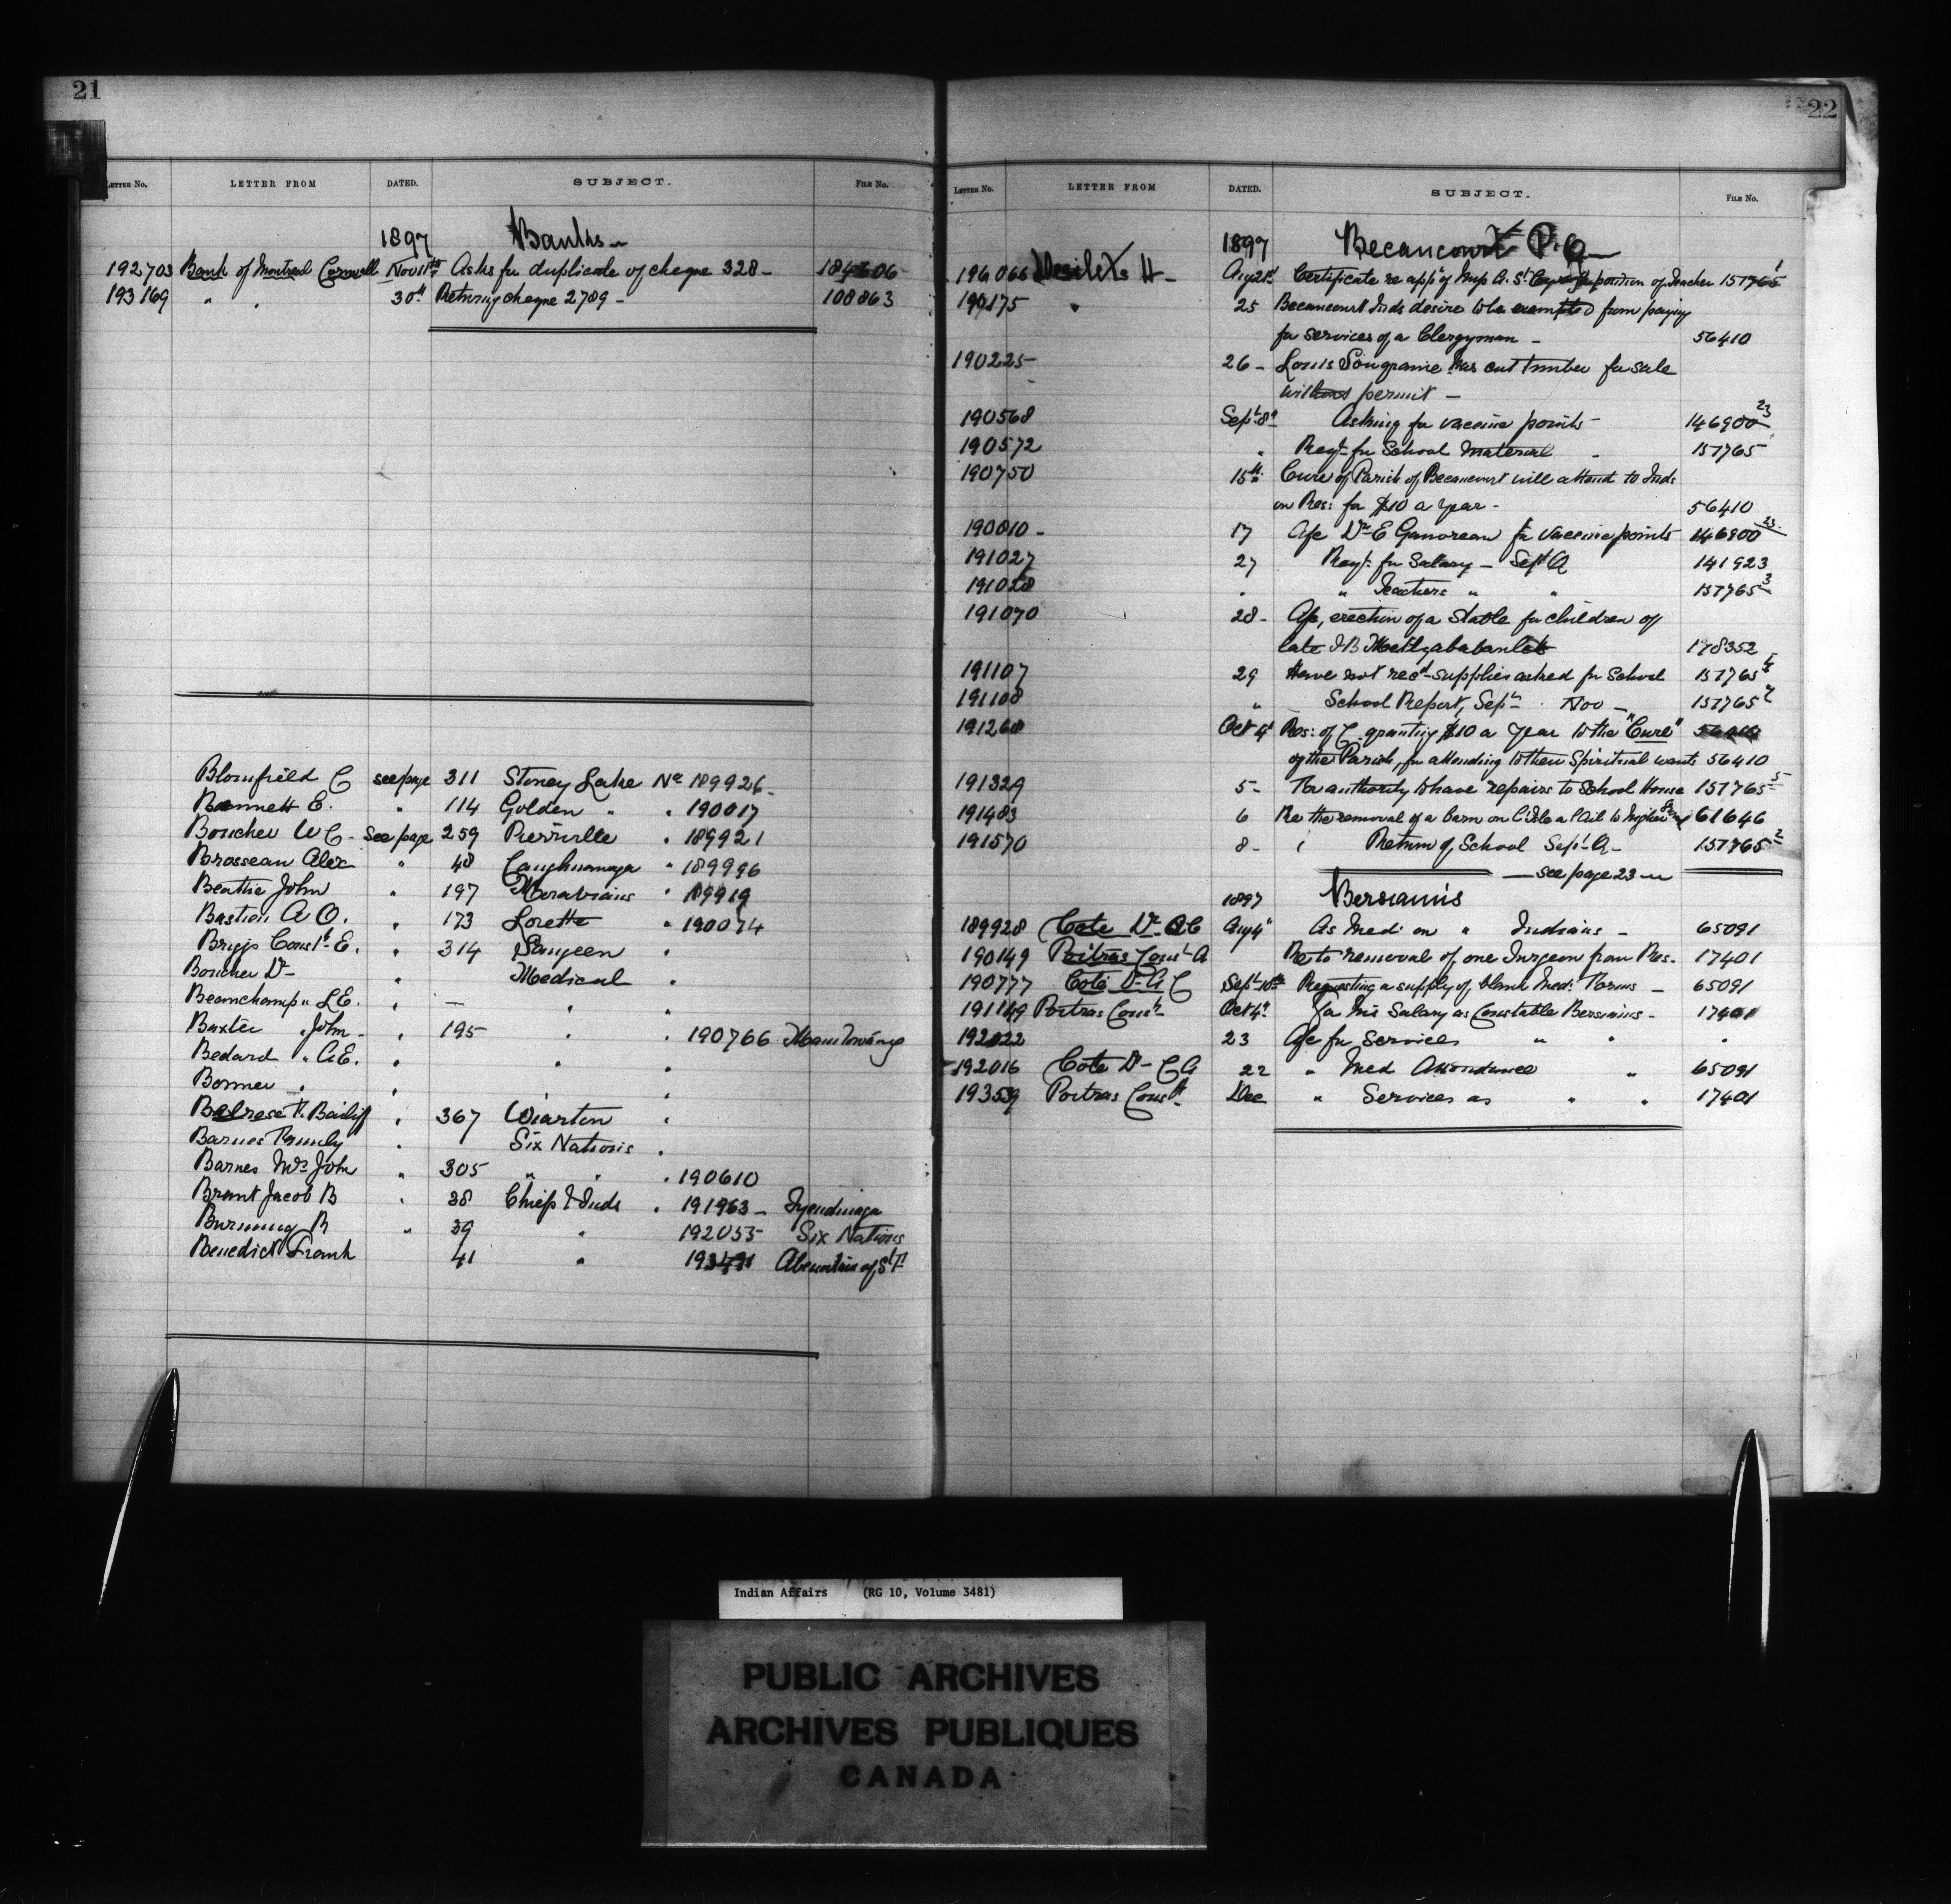 21
LETTER NO. LETTER FROM DATED. SUBJECT. FILE NO.
1897 Banks
192703 Bank of Montreal Cornwall Nov 11th Asks for duplicate of cheque 328 - 184606
193169 " " 30th Returning cheque 2789 - 108863
Blomfield C see page 311 Stoney Lake No 189926
Bennett E. " 114 Golden " " 190017
Boucher W C - See page 259 Pierrville " 189921
Brosseau Alex " 48 Caughnawaga " 189996
Beattie John " 197 Moravians " 189919
Bastien A O. " 173 Lorette " 190074
Briggs Const E. " 314 Saugeen "
Boucher Dr - " Medical "
Beauchamp " L E. " — " "
Baxter " John - " 195 " " 190766 Manitowaning
Bedard " A E. " " "
Bonner " " " "
Belrose T. Bailiff " 367 Wiarton "
Barnes Family " Six Nations "
Barnes Mrs John " 305 " " " 190610
Brant Jacob B " 38 Chiefs & Inds " 191963 - Tyendinaga
Burning R " 39 " 192055 Six Nations
Benedict Frank 41 " Abenakis of St F
22
LETTER NO. LETTER FROM DATED. SUBJECT. FILE NO.
1897 Becancour P.Q -
Desilets H - Aug 21st Certificate re app of position of Teacher 151765 1
190175 " 25 Becancourt Inds desire to be exempted from paying
for services of a Clergyman - 56410
190225 26 - Louis has cut timber for sale
without permit -
190568 Sept 8th Asking for vaccine points - 146900 23
190572 " Reqt for School Material - 151765
190750 15th Cure of Parish of Becancourt will attend to Inds
on Res: for $10 a year - 56410
190810 - 17 A/c Dr E for Vaccine points 146900 23
191027 27 Reqt for Salary - Sept Q 141923
191028 " " Teachers " " 151765 3
191070 28 - A/c, erection of a Stable for children of
late J B 178352
191107 29 Have not recd supplies asked for School 151765
191108 " School Report, Sep - Nov - 151765 2
191260 Oct 4th Res: of C granting $10 a year to the "Cure"
of the Parish, for attending to their Spiritual wants 56410
191329 5 - For authority to have repairs to School House 151765 5
191483 6 Re the removal of a barn on 61646
191570 8 - Return of School Sept Q - 151765 2
see page 23
1897 Bersimis
189928 Cote Dr A C Aug 4th As Med: on " Indians - 65091
190149 Poitras Const A Re to removal of one Surgeon from Res. 17401
190777 Cote Dr A C Sept 10th Requesting a supply of blank Med: Forms - 65091
191149 Poitras Const Oct 4th For his Salary as Constable Bersimis - 17401
192022 23 A/c for Services " " "
192016 Cote Dr C A 22 " Med Attendance " 65091
193539 Poitras Const Dec " Services as " " 17401
Indian Affairs (RG 10, Volume 3481)
PUBLIC ARCHIVES
ARCHIVES PUBLIQUES
CANADA